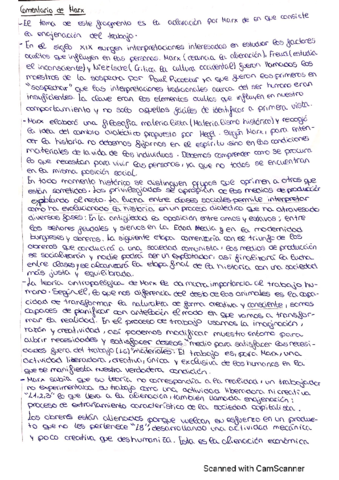 Comentario de Marx
- El tema de este fragmento es la aclaración por Marx de en que consiste
la enajenación del trabajo.
- En el siglo XIX surgen interpretaciones interesadas en estudiar los factores
ocultos que influyen en las personas. Marx (economía, la alienación), Freud (estudia
el inconsciente) y Nietzsche (critica la cultura occidental) fueron llamados los
maestros de la sospecha por Paul Ricoeur ya que fueron los primeros en
"sospechar" que las interpretaciones tradicionales acerca del ser humano eran
insuficientes. La clave eran los elementos ocultos que influyen en nuestro
comportamiento y no solo aquellos fáciles de identificar a primera vista.
- Marx elaboró una filosofía materialista (Materialismo histórico) y recogió
la idea del cambio dialéctico propuesto por Hegel. Según Marx, para enten-
der la historia no debemos fijarnos en el espíritu sino en las condiciones
materiales de la vida de los individuos. Debemos comprender como se procura
lo que necesitan para vivir las personas, ya que no todos se encuentran
en la misma posición social.
En todo momento histórico se distinguen grupos que oprimen a otros que
están sometidos. Los privilegiados se apropian de los medios de producción
explotando al resto. La lucha entre clases sociales permite interpretar
como ha evolucionado la historia, en un proceso dialéctico que ha atravesado
diversas fases: En la antigüedad la oposición entre amos y esclavos; entre
los señores feudales y siervos en la Edad Media y en la modernidad
burgueses y obreros. La siguiente etapa comenzaría con el triunfo de los
obreros que conducirá a una sociedad comunista. Los medios de producción
se socializarán y nadie podrá ser un explotador, así finalizará la lucha
entre clases y se alcanzará la etapa final de la historia con una sociedad
más justa y equilibrada.
- La teoría antropológica de Marx le da mucha importancia al trabajo hu-
mano. Según él, lo que nos diferencia del resto de los animales es la capa-
cidad de transformar la naturaleza de forma creativa y consciente, somos
capaces de planificar con antelación el modo en que vamos a transfor-
mar la realidad. En el proceso de trabajo usamos la imaginación,
razón y creatividad, así podemos modificar nuestro entorno para
cubrir necesidades y satisfacer deseos: medio para satisfacer las necesi-
dades fuera del trabajo (4) "materiales". El trabajo es, para Marx, una
actividad liberadora, creativa, única y exclusiva de los humanos en la
que se manifiesta nuestra verdadera condición.
- Marx sabía que su teoría no correspondía a la realidad, un trabajador
no experimentaba su trabajo como una actividad liberadora ni creativa
lo que lleva a la alienación, también llamada enajenación:
proceso de extrañamiento característico de la sociedad capitalista.
Los obreros están alienados porque vuelcan su esfuerzo en un produc-
to que no les pertenece, desarrollando una actividad mecánica
y poco creativa que deshumaniza. Esta es la alienación económica.
Scanned with CamScanner